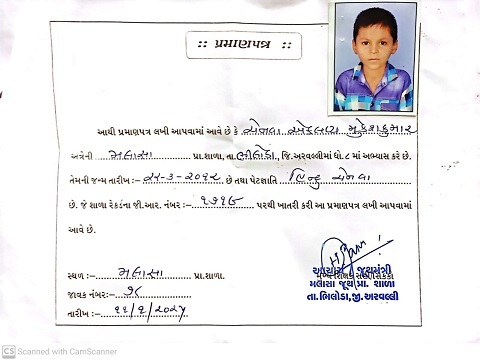 :: પ્રમાણપત્ર ::
આથી પ્રમાણપત્ર લખી આપવામાં આવે છે કે ચેનવા મુકેશકુમાર
અત્રેની મલાસા પ્રા.શાળા, તા. ભીલોડા, જિ.અરવલ્લીમાં ધો. ૮ માં અભ્યાસ કરે છે.
તેમની જન્મ તારીખ :- ૨૨-૩-૨૦૧૨ છે તથા પેટાજ્ઞાતિ હિન્દુ ચેનવા
છે. જે શાળા રેકર્ડના જી.આર. નંબર :- ૧૭૧૬ પરથી ખાતરી કરી આ પ્રમાણપત્ર લખી આપવામાં
આવે છે.
સ્થળ :- મલાસા પ્રા.શાળા.
જાવક નંબર:- ૭૮
તારીખ :- ૨૨/૧/૨૦૨૫
આચાર્ય જૂથમંત્રી
મલાસા જૂથ પ્રા. શાળા
તા.ભિલોડા,જી.અરવલ્લી
CS Scanned with CamScanner